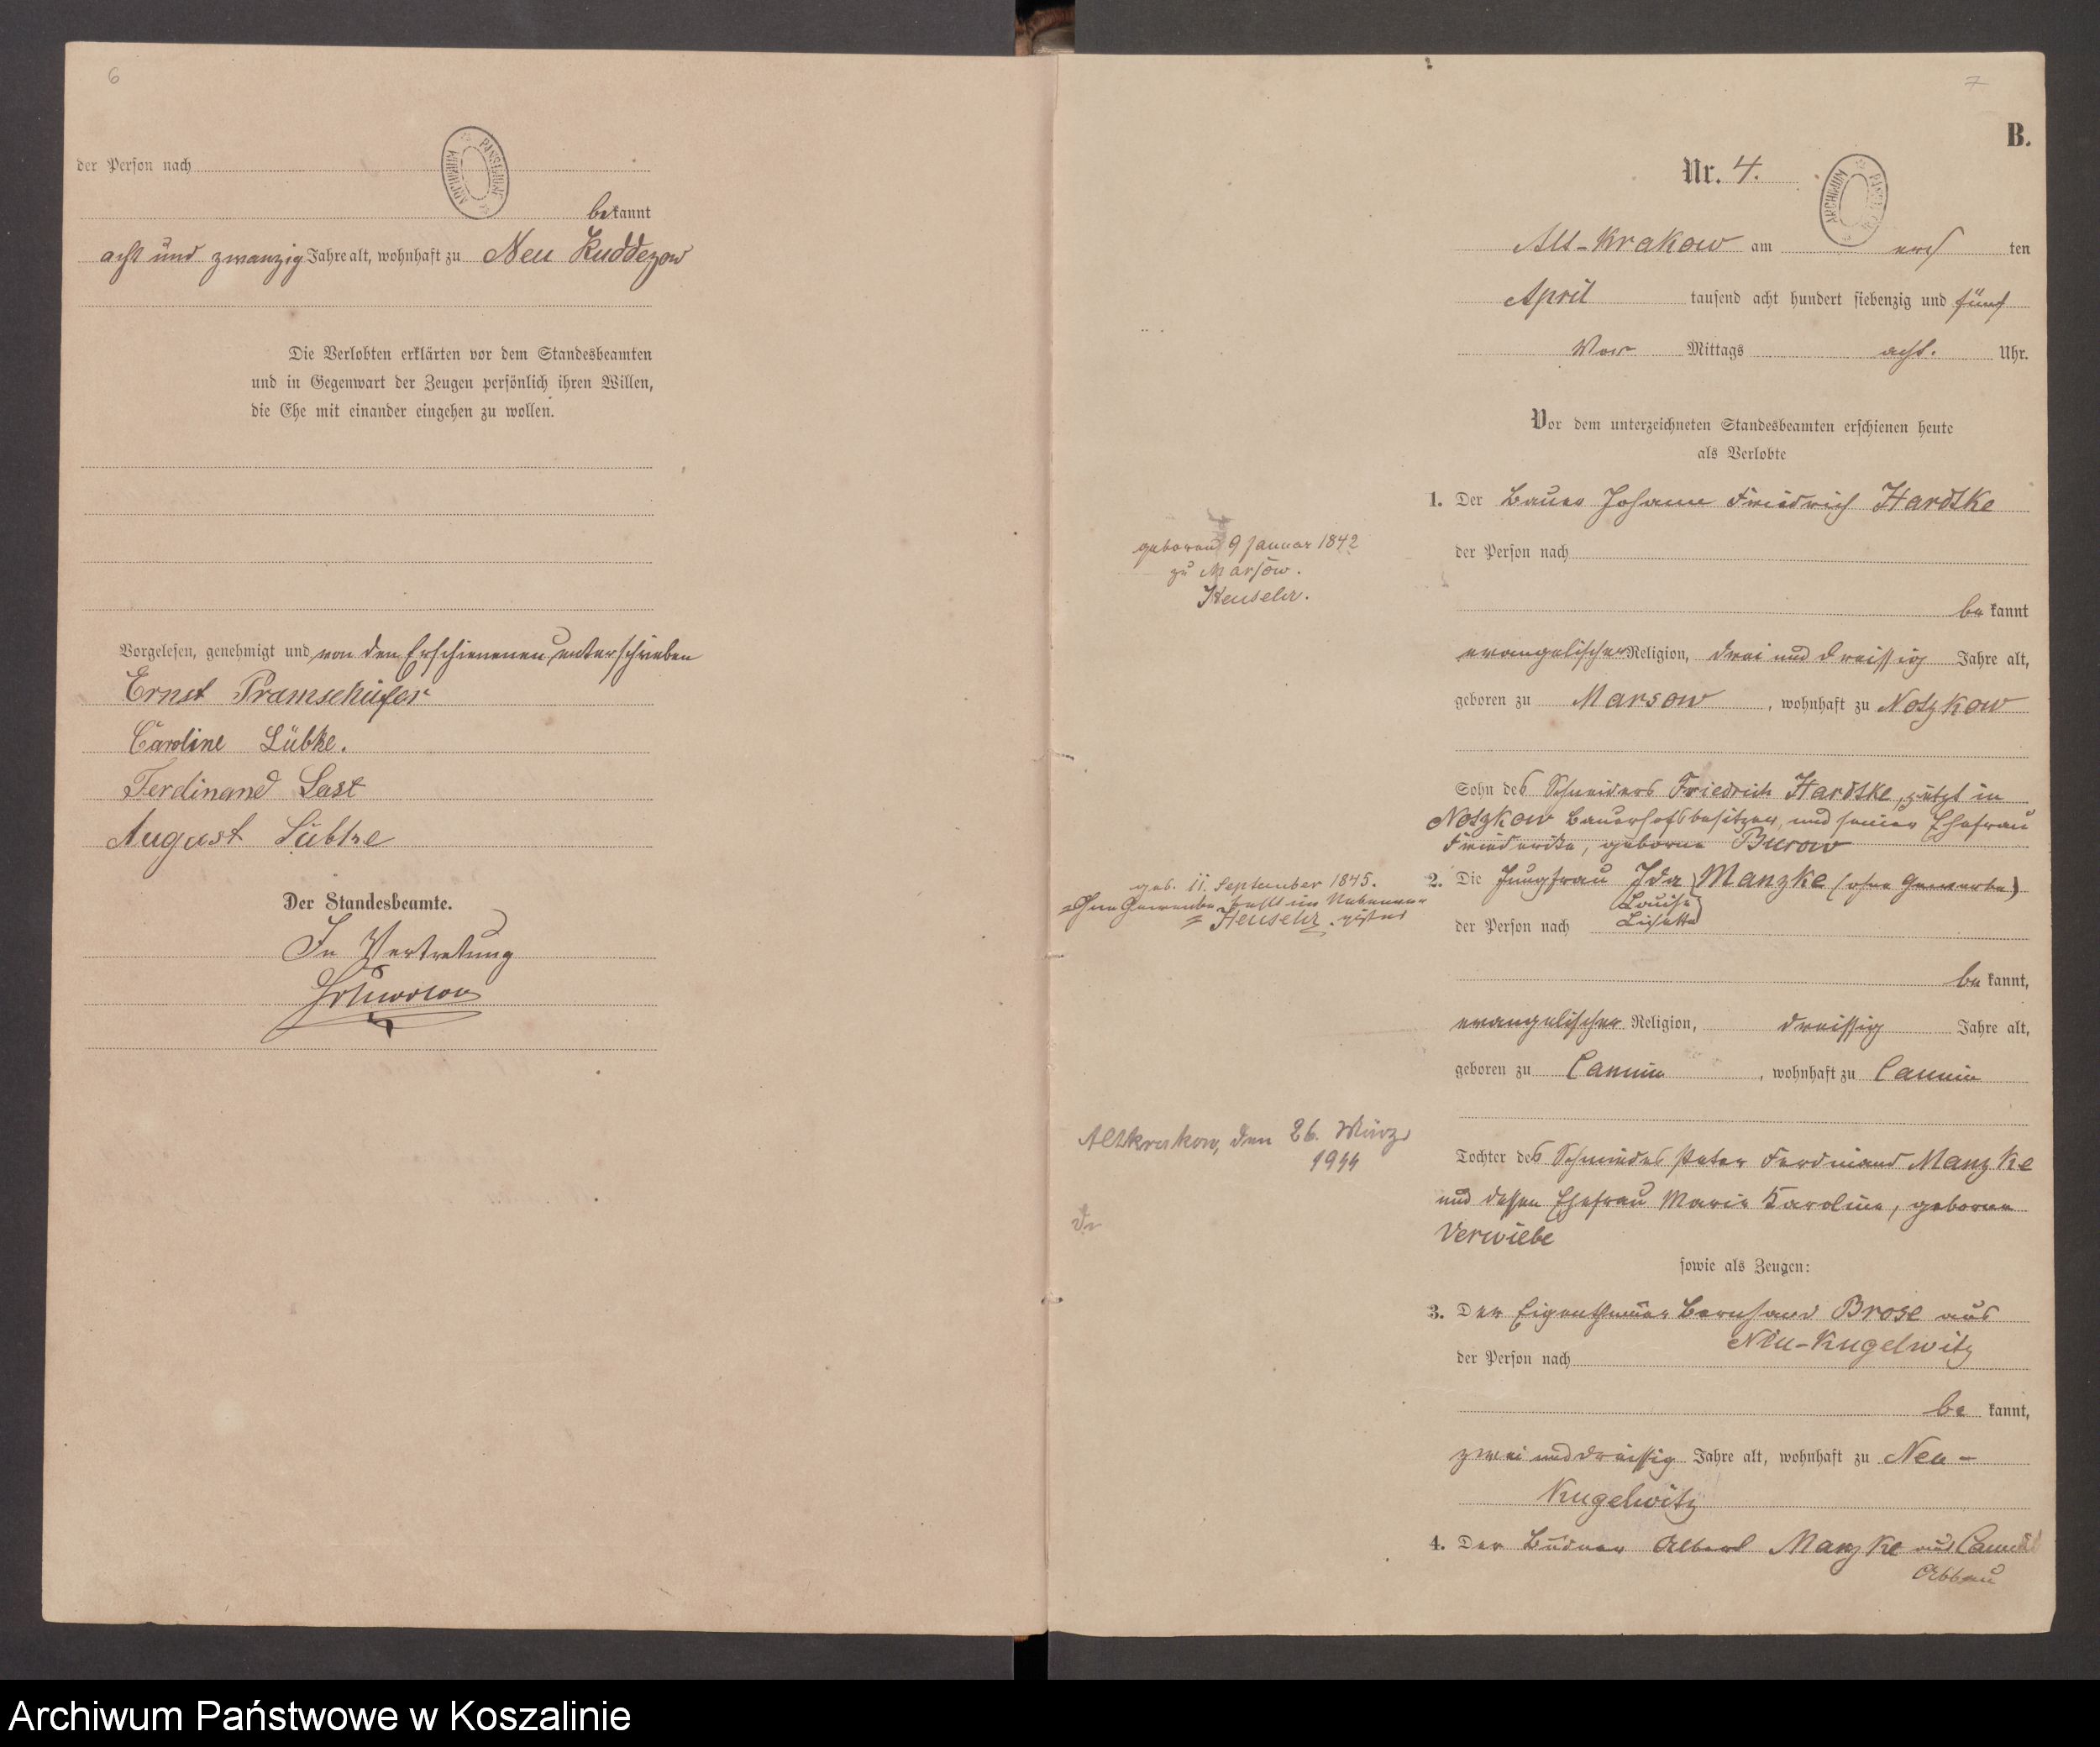 6
der Person nach
bekannt
acht und zwanzig Jahre alt, wohnhaft zu Neu Kuddezow
Die Verlobten erklärten vor dem Standesbeamten
und in Gegenwart der Zeugen persönlich ihren Willen,
die Ehe mit einander eingehen zu wollen.
Vorgelesen, genehmigt und von den Erschienenen unterschrieben
Ernst Pramschüfer
Caroline Lübke.
Ferdinand Last
August Lübke
Der Standesbeamte.
In Vertretung
7
B.
Nr. 4.
Alt-Krakow am ersten
April tausend acht hundert siebenzig und fünf
Vor Mittags acht. Uhr.
Vor dem unterzeichneten Standesbeamten erschienen heute
als Verlobte
1. Der Bauer Johann Friedrich Hardtke
der Person nach
bekannt
evangelischer Religion, drei und dreissig Jahre alt,
geboren zu Marsow, wohnhaft zu Notzkow
Sohn des Schneiders Friedrich Hardtke, jetzt in
Notzkow Bauerhofsbesitzer, und seiner Ehefrau
Friederike, geborne Burow
2. Die Jungfrau Ida Manzke (ohne Gewerbe)
Louise
der Person nach Lisette
bekannt,
evangelischer Religion, dreissig Jahre alt,
geboren zu Cannin, wohnhaft zu Cannin
Tochter des Schmiedes Peter Ferdinand Manzke
und dessen Ehefrau Marie Karoline, geborne
Verwiebe
sowie als Zeugen:
3. Der Eigenthümer Bernhard Brose aus
Neu-Kugelwitz
der Person nach
bekannt,
zwei und dreissig Jahre alt, wohnhaft zu Neu-
Kugelwitz
4. Der Büdner Albert Manzke aus Cannin
Abbau
geboren 9 Januar 1842
zu Marsow.
geb. 11. September 1845.
Altkrakow, den 26. März
1944
ARCHIWUM PAŃSTWOWE
ARCHIWUM
Archiwum Państwowe w Koszalinie